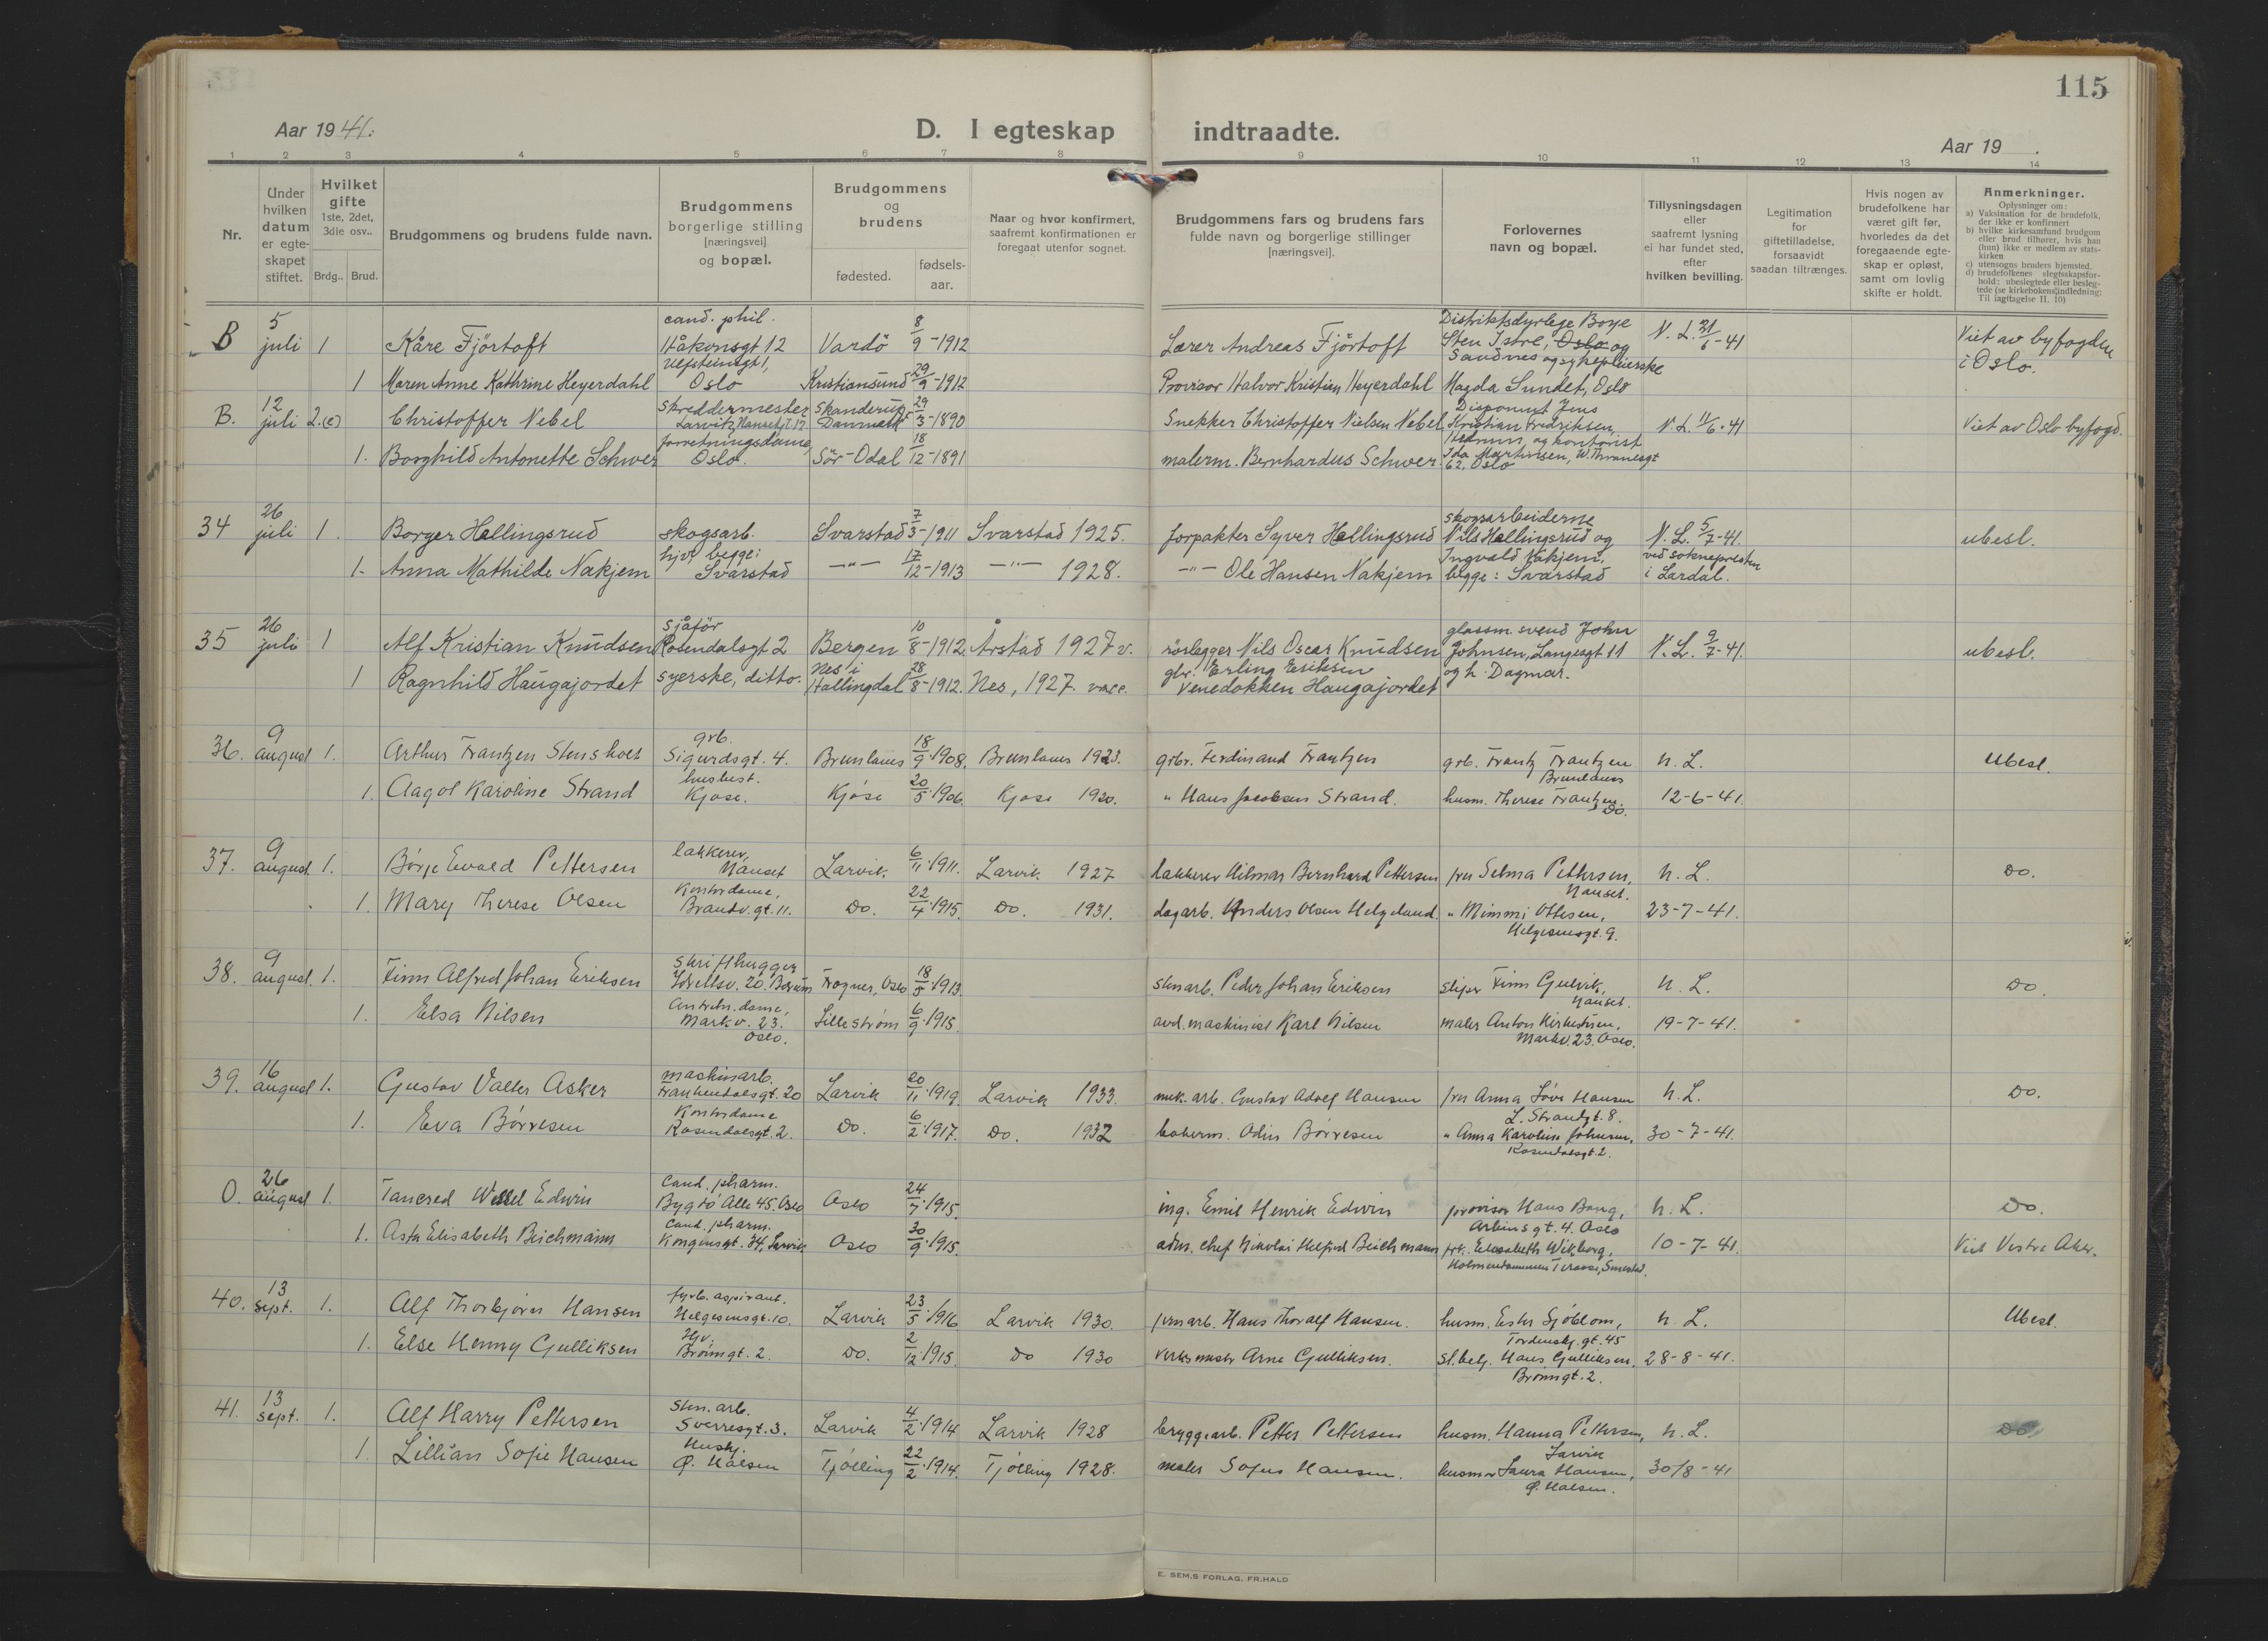 115
Aar 1941.
D. I egteskap indtraadte.
Aar 19 .
1 2 3 4 5 6 7 8 9 10 11 12 13 14
Nr.
Under hvilken datum er egteskapet stiftet.
Hvilket gifte 1ste, 2det, 3die osv..
Brdg.. Brud.
Brudgommens og brudens fulde navn.
Brudgommens borgerlige stilling [næringsvei] og bopæl.
Brudgommens og brudens
fødested.
fødsels-aar.
Naar og hvor konfirmert, saafremt konfirmationen er foregaat utenfor sognet.
Brudgommens fars og brudens fars fulde navn og borgerlige stillinger [næringsvei].
Forlovernes navn og bopæl.
Tillysningsdagen eller saafremt lysning ei har fundet sted, efter hvilken bevilling.
Legitimation for giftetilladelse, forsaavidt saadan tiltrænges.
Hvis nogen av brudefolkene har været gift før, hvorledes da det foregaaende egteskap er opløst, samt om lovlig skifte er holdt.
Anmerkninger.
Oplysninger om:
a) Vaksination for de brudefolk, der ikke er konfirmert
b) hvilke kirkesamfund brudgom eller brud tilhører, hvis han (hun) ikke er medlem av statskirken
c) utensogns bruders hjemsted.
d) brudefolkenes slegtsskapsforhold: ubeslegtede eller beslegtede (se kirkebokens indledning: Til iagttagelse II. 10)
B 5 juli 1 Kåre Fjörtoft cand. phil. Håkonsgt 12 Vardö 8/9-1912 Lærer Andreas Fjörtoft Distriktsdyrlege Boye Sten Istre, Oslo og Sandnes og sykepleierske N.L. 21/6-41 Viet av byfogden i Oslo.
1 Maren Anne Kathrine Heyerdahl Ulfsteinsgt 1, Oslo Kristiansund 29/9-1912 Provisor Halvor Kristian Heyerdahl Magda Sundet, Oslo
B. 12 juli 2.(e) Christoffer Nebel Skreddermester Larvik, Hansegt. 17 Skanderup Danmark 29/3-1890 Snekker Christoffer Nielsen Nebel Disponent Jens Kristian Fredriksen, Hedrum, og kontorist N.L. 11/6-41 Viet av Oslo byfogd.
1. Borghild Antonette Schwer forretningsdame, Oslo. Sör-Odal 18/12-1891 malerm. Bernhardus Schwer. Ida Martinsen, W. Thranesgt 62. Oslo
34 26 juli 1. Borger Hellingsrud skogsarb. Svarstad 7/3-1911 Svarstad 1925. forpakter Syver Hellingsrud skogsarbeiderne Nils Hellingsrud og N.L. 5/7-41. ubesl.
1. Anna Mathilde Nakjem hjv. begge: Svarstad -"- 17/12-1913 -"- 1928. -"- Ole Hansen Nakjem Ingvald Nakjem, begge: Svarstad ved soknepresten i Lardal.
35 26 juli 1 Alf Kristian Knudsen sjåför Rosendalsgt 2 Bergen 10/8-1912 Årstad 1927 v. rörlegger Nils Oscar Knudsen glassm. svend John Johnsen, Langesgt 11 N.L. 9/7-41. ubesl.
1 Ragnhild Haugajordet syerske, ditto. Nes i Hallingdal 28/8-1912. Nes, 1927. vacc. gbr. Erling Eriksen Venedokken Haugajordet og h. Dagmar.
36. 9 august 1. Arthur Frantzen Stensholt grb. Sigurdsgt. 4. Brunlanes 18/9.1908. Brunlanes 1923. grbr. Ferdinand Frantzen grb. Frantz Frantzen Brunlanes n.L. Ubesl.
1. Aagot Karoline Strand husbest. Kjose. Kjose 20/5.1906. Kjose 1920. " Hans Jacobsen Strand. husm. Therese Frantzen. Do. 12-6-41.
37. 9 august 1. Börje Ewald Pettersen lakkerer, Nanset Larvik. 6/11.1911. Larvik 1927 lakkerer Hilmar Bernhard Pettersen fru Selma Pettersen, Nanset. n.L. Do.
1. Mary Therese Olsen Kontordame, Brandv.gt. 11. Do. 22/4.1915. Do. 1931. dagarb. Anders Olsen Helgeland. " Mimmi Ottesen, Helgesensgt. 9. 23-7-41.
38. 9 august. 1. Finn Alfred Johan Eriksen Skrifthugger Idrettsv. 20. Bærum Frogner, Oslo 18/5.1913. stenarb. Peder Johan Eriksen sliper Finn Gulvik, Nanset. n.L. Do.
1. Elsa Nilsen Markv. 23. Oslo. Lillestrøm 6/9.1915. avd. maskinist Karl Nilsen maler Anton Kirkestuen, Markv. 23. Oslo. 19-7-41.
39. 16 august 1. Gustav Valter Asker maskinarb. Frankendalsgt. 20 Larvik 20/11.1919. Larvik 1933. mek. arb. Gustav Adolf Hansen fru Anna Lövi Hansen L. Strandgt. 8. n.L. Do.
1. Eva Börresen Kontordame Rosendalsgt. 2. Do. 6/2.1917. Do. 1932 bakerm. Odin Börresen " Anna Karoline Johnsen, Rosendalsgt. 2. 30-7-41.
O. 26 august 1. Tancred Wessel Edwin Cand. pharm. Bygdö Alle 45. Oslo Oslo 24/7.1915. ing. Emil Henrik Edwin provisor Hans Bang, Arbinsgt. 4. Oslo n.L. Do.
1. Asta Elisabeth Beichmann Cand. pharm. Kongensgt. 34, Larvik Oslo 30/9.1915. adm. chef Nikolai Helfred Beichmann frk. Elisabeth Wikborg, Holmendammen Terasse, Smestad. 10-7-41. Viet Vestre Aker.
40. 13 sept. 1. Alf Thorbjörn Hansen fyrb. aspirant. Helgesensgt. 10. Larvik 23/5.1916 Larvik 1930. jernarb. Hans Thoralf Hansen. husm. Ester Sjöblom, Tordenskj.gt. 45 n.L. Ubesl.
1. Else Henny Gulliksen Hjv. Brömgt. 2. Do. 2/12.1915. Do 1930 Verksmester Arne Gulliksen. st.betj. Hans Gulliksen, Brömgt. 2. 28-8-41.
41. 13 sept. 1. Alf Harry Pettersen Sten. arb. Sverresgt. 3. Larvik 4/2.1914 Larvik 1928 bryggearb. Petter Pettersen husm. Hanna Pettersen, Larvik n.L. Do
1. Lillian Sofie Hansen Hushj. Ö. Halsen Tjölling 22/2.1914. Tjölling 1928. maler Sofus Hansen. husmor Laura Hansen, Ö. Halsen. 30/8-41
E. SEM.S FORLAG, FR.HALD